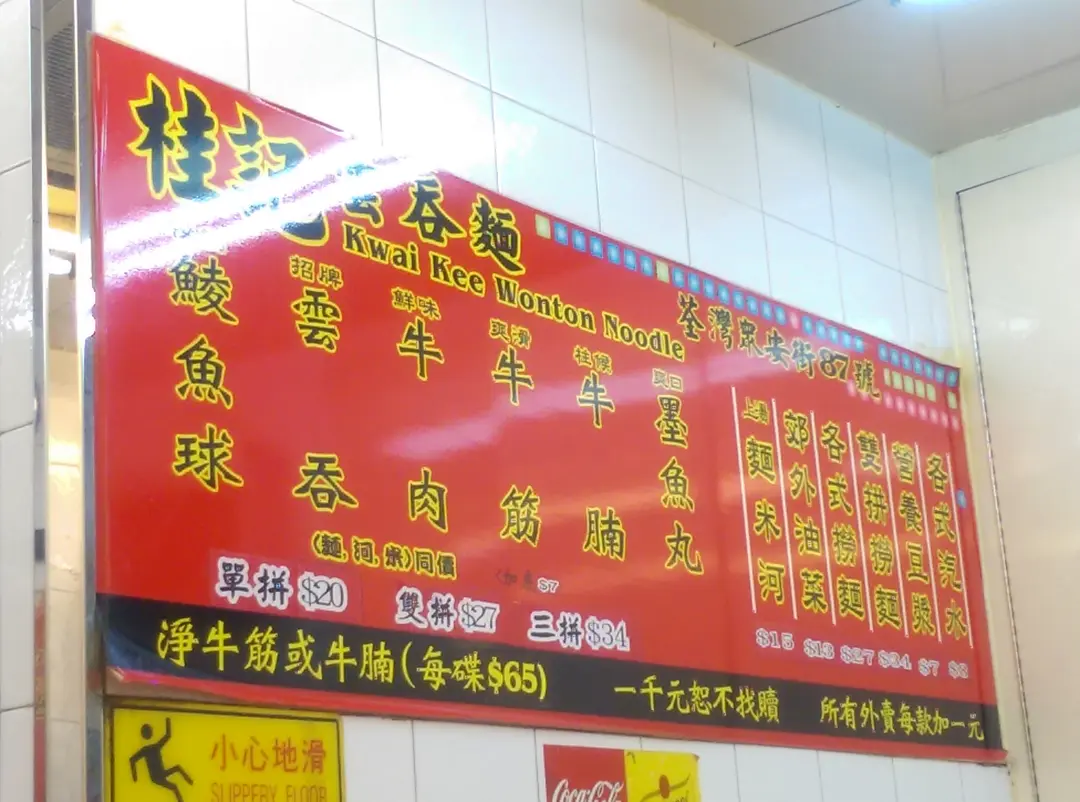 桂記雲吞麵
Kwai Kee Wonton Noodle
荃灣眾安街87號
鯪魚球
招牌
雲吞
鮮味
牛肉
爽滑
牛筋
柱候
牛腩
爽口
墨魚丸
(麵,河,米)同價
單拼$20
雙拼$27
三拼$34
$7
上湯
麵米河 $15
郊外油菜 $13
各式撈麵 $27
雙拼撈麵 $34
營養豆漿 $7
各式汽水 $8
淨牛筋或牛腩(每碟$65)
一千元恕不找贖
所有外賣每款加一元
小心地滑
SLIPPERY FLOOR
Coca-Cola